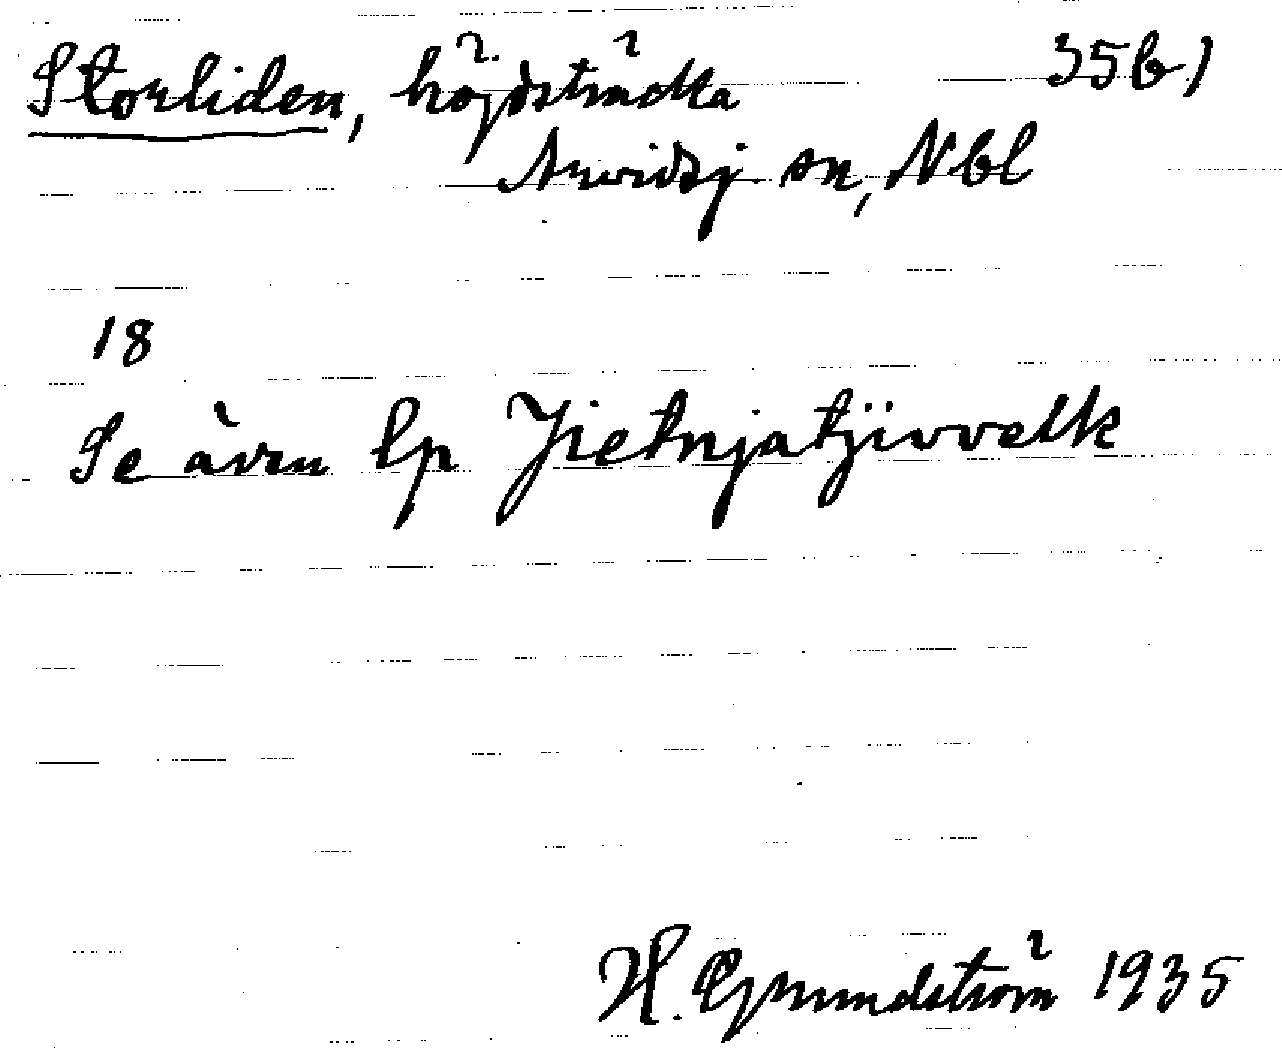 Storliden, höjdsträcka 35b1
Arvidsj. sn, Nbl
18
Se även lp Jietnjatjivvelk
H. Grundström 1935